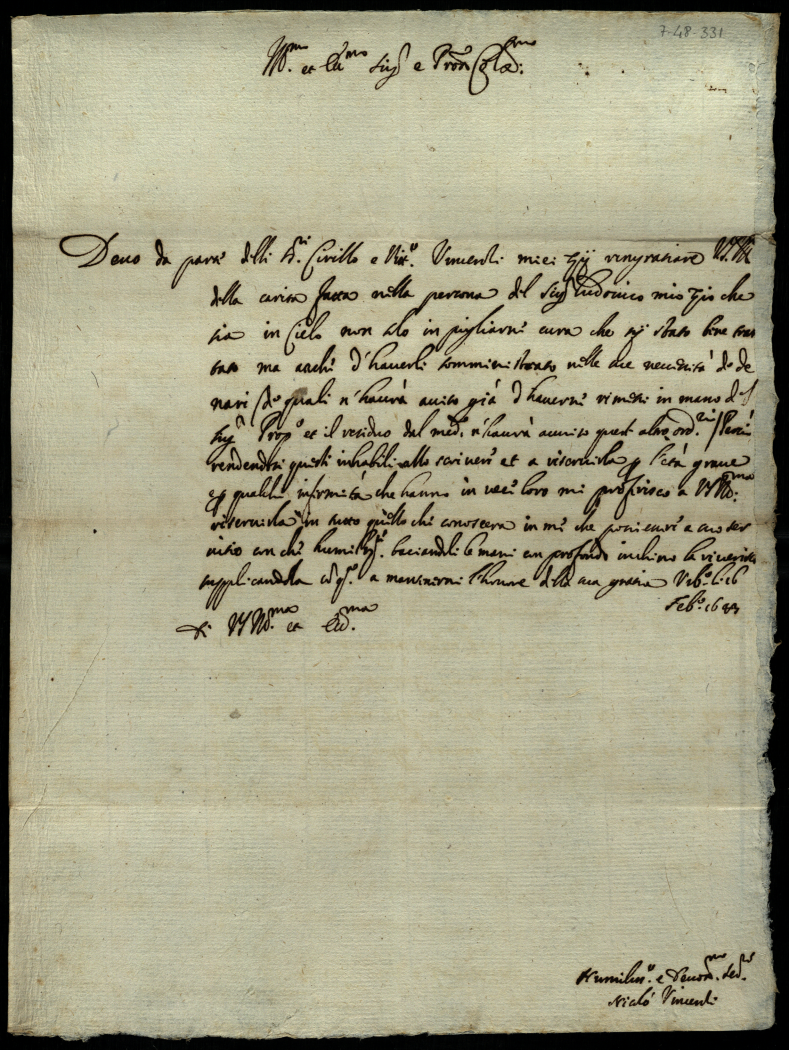 7-48-331
Ill.mo et Ecc.mo Sig.r e Pron Col.mo
Devo da parte delli SS.ri Cirillo e Vitt.o Vincenti miei zij ringratiare V.S. Ill
della carita fatta nella persona del Sig.r Ludovico mio zio che
sia in Cielo non solo in pigliarne cura che sij stato bene trat
tato ma anche d'haverli somministrato nelle sue necessità de de
nari de quali n'havrà auiso già d'haverne rimessi in mano del
Sig.r Prop.o et il residuo dal med.o n'havrà auuiso quest altro ord.rio
rendendosi questi inhabili allo scrivere et a riservirla p l'età grave
e p qualche infirmità che hanno in vece loro mi proferisco a VS Ill.ma
riservirla in tutto quello che conoscerà in me che possi essere a suo ser
vitio con che humilm.te baciandoli le mani con profondo inchino la riverisco
supplicandola a mantenermi l'honore della sua gratia li 16
Feb.o
Di VS Ill.ma et Ecc.ma
Humiliss.o e Devot.mo Ser.re
Nicolò Vincenti